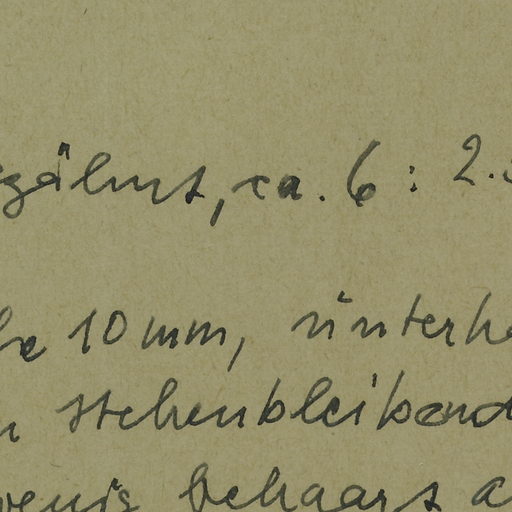 gezähnt, ca. 6 : 2.
10 mm, unterh
stehenbleibend
wenig behaart a